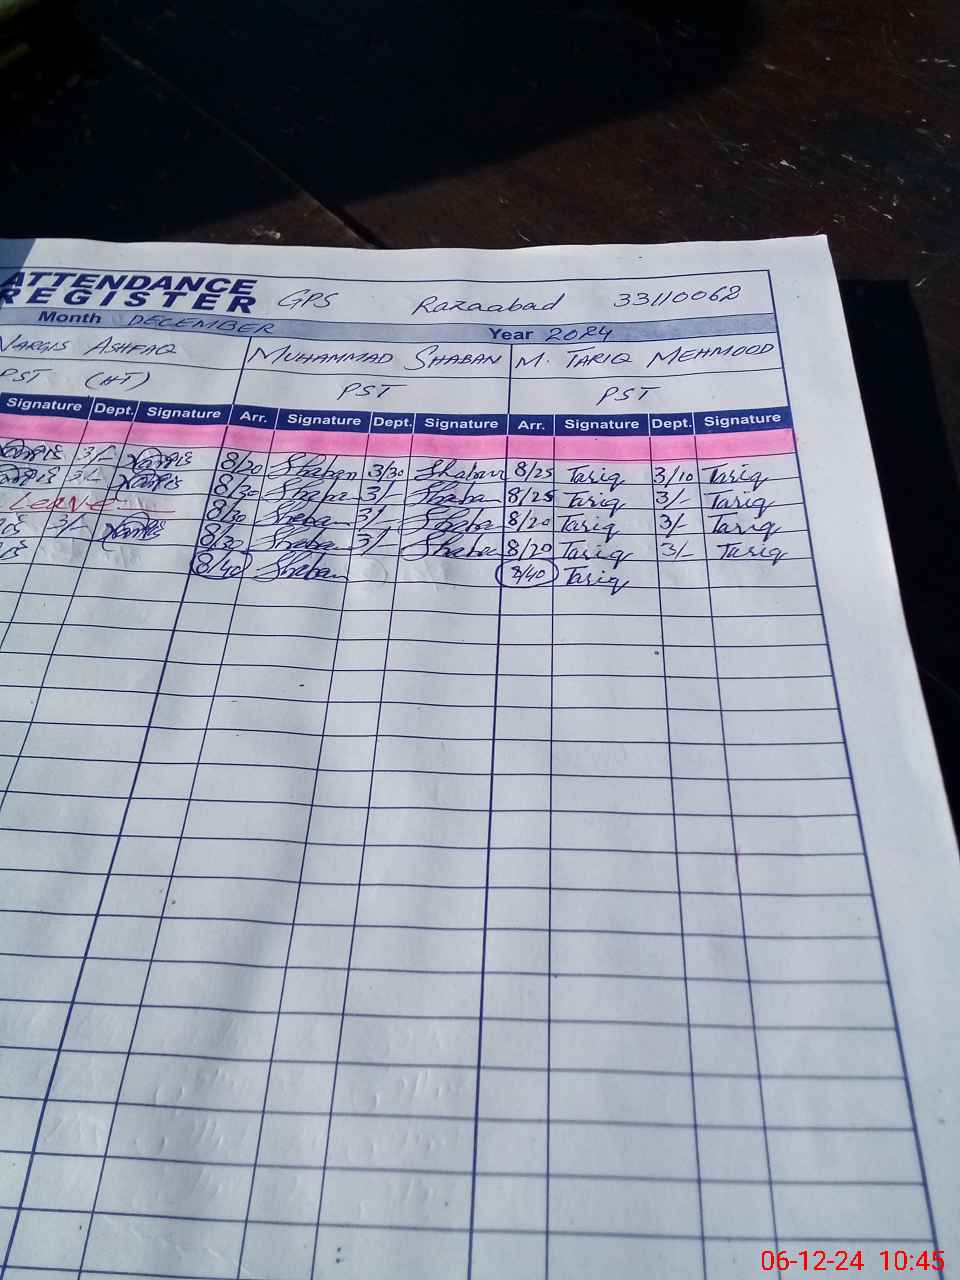 ATTENDANCE
REGISTER GPS Razaabad 33110062
Month DECEMBER Year 2024
NARGIS ASHFAQ MUHAMMAD SHABAN M. TARIQ MEHMOOD
PST (HT) PST PST
Signature Dept. Signature Arr. Signature Dept. Signature Arr. Signature Dept. Signature
Nargis 3/- Nargis 8/20 Shaban 3/30 Shaban 8/25 Tariq 3/10 Tariq
Nargis 3/- Nargis 8/30 Shaban 3/- Shaban 8/25 Tariq 3/- Tariq
Leave 8/30 Shaban 3/- Shaban 8/20 Tariq 3/- Tariq
3/- Nargis 8/30 Shaban 3/- Shaban 8/20 Tariq 3/- Tariq
8/40 Shaban 8/40 Tariq
06-12-24 10:45